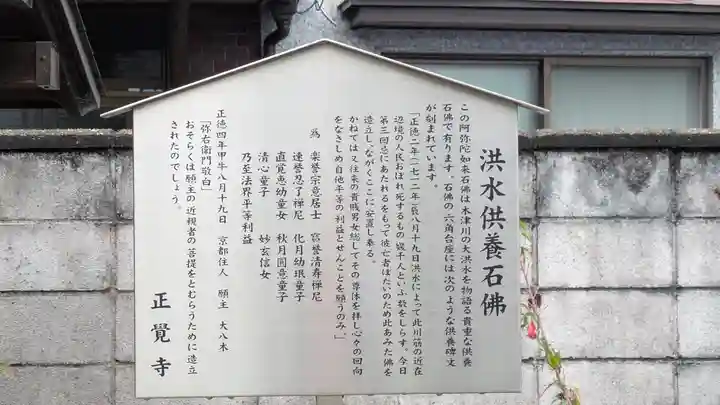 洪水供養石佛
この阿弥陀如来石佛は木津川の大洪水を物語る貴重な供養
石佛で有ります。石佛の六角台座には次のような供養碑文
が刻まれています。
「正徳二年(一七一二年)八月十九日洪水によって此川筋の近在
辺境の人民おぼれ死するもの幾千人といふ数をしらす。今日
第三回忌にあたれるをもって彼亡者ぼだいのため此あみた佛を
造立し、ながくここに安置し奉る。
かねては又往来の貴賎男女総してその尊体を拝し心々の回向
をなさしめ自他平等の利益とせんことを願うのみ。」
為 楽誉宗意居士 富誉清寿禅尼
速誉忍了禅尼 化月幼珉童子
直覚恵幼童女 秋月圓意童子
清心童子 妙玄信女
乃至法界平等利益
正徳四年甲午八月十九日 京都住人 願主 大八木
「弥右衛門敬白」
おそらくは願主の近親者の菩提をとむらうために造立
されたのでしょう。
正覺寺